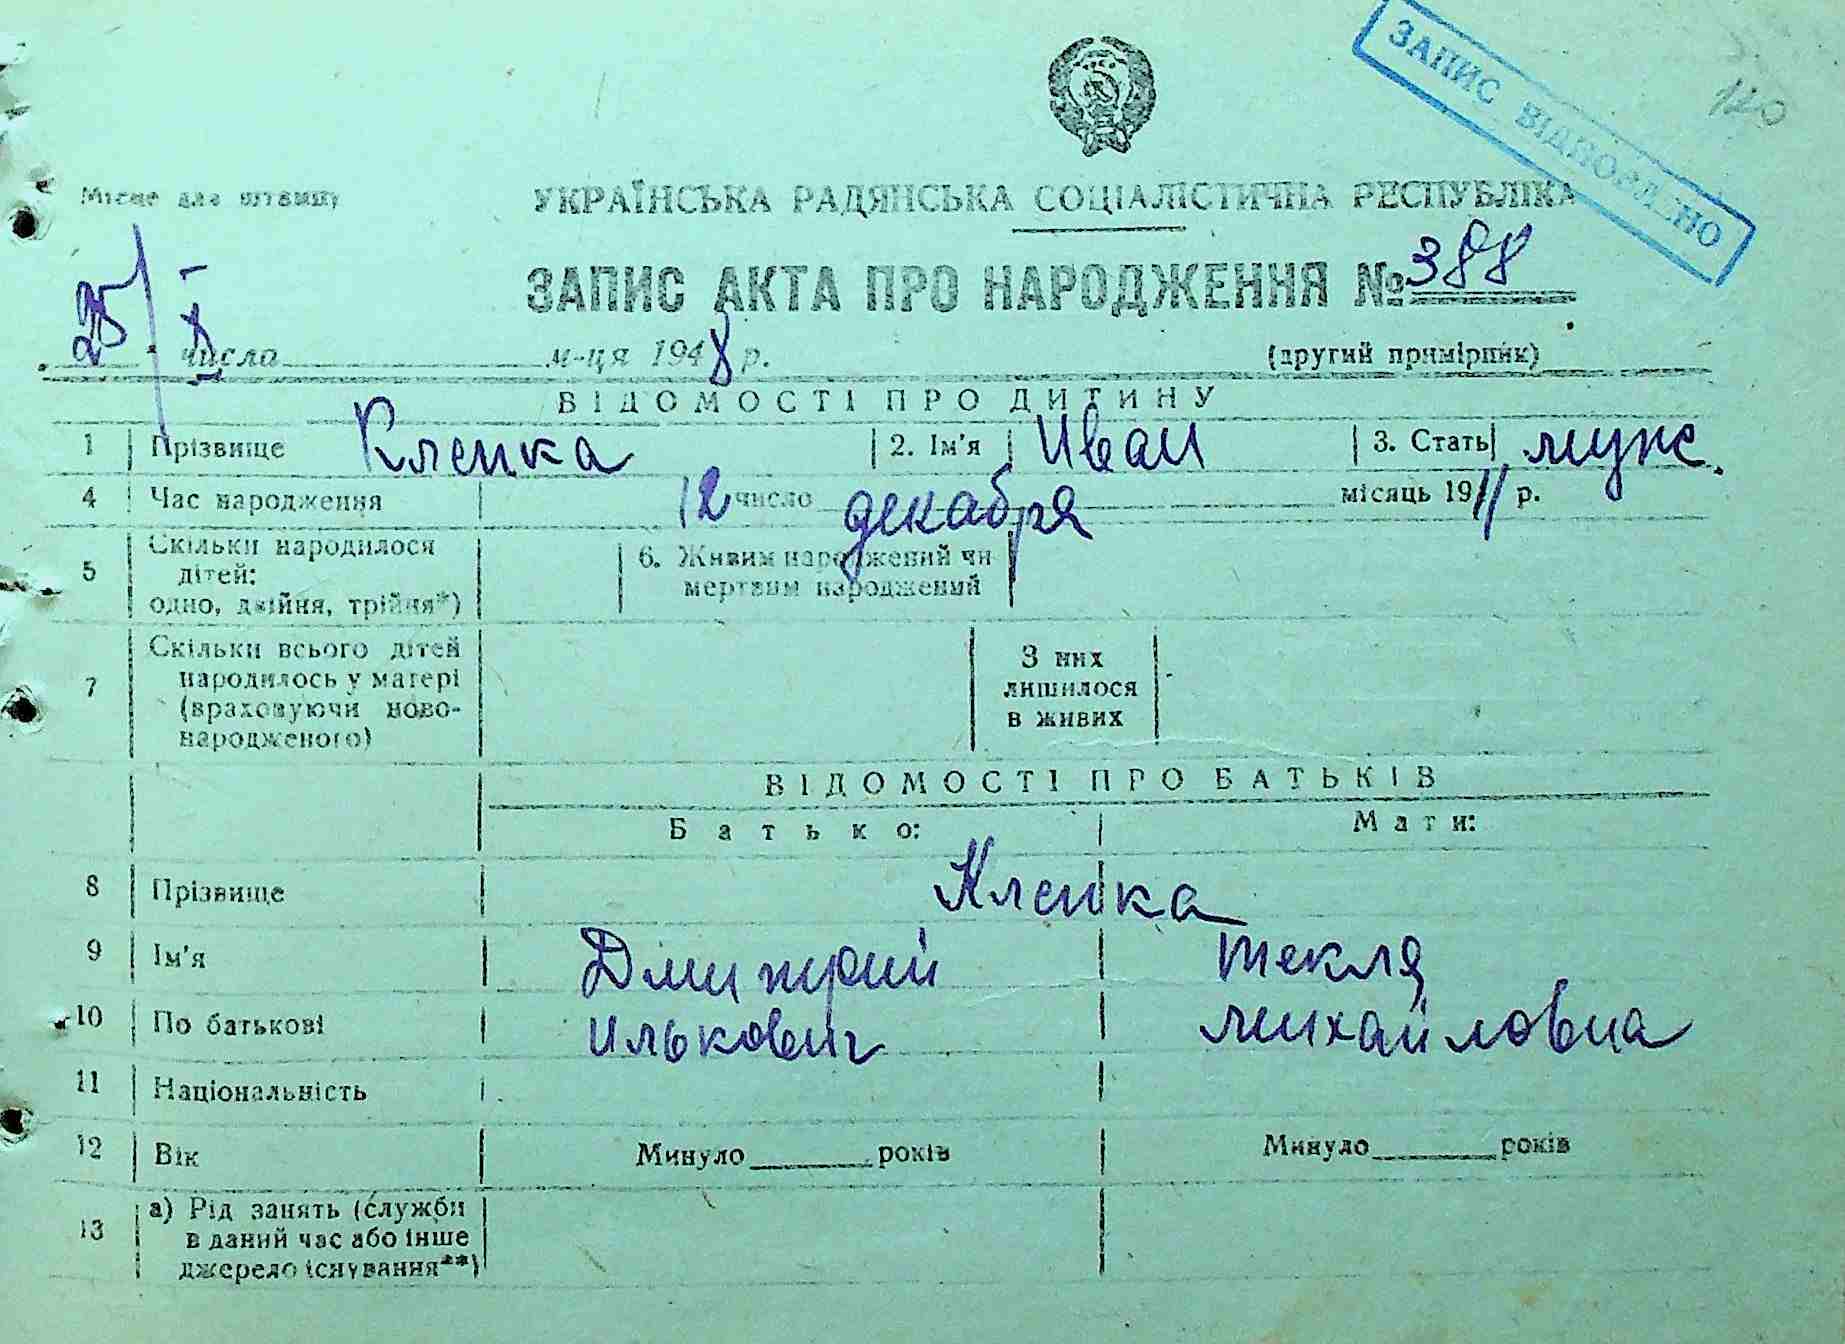 ЗАПИС ВІДНОВЛЕНО
120
Місце для штампу
УКРАЇНСЬКА РАДЯНСЬКА СОЦІАЛІСТИЧНА РЕСПУБЛІКА
ЗАПИС АКТА ПРО НАРОДЖЕННЯ № 388
25/X числа м-ця 1948 р.
(другий примірник)
ВІДОМОСТІ ПРО ДИТИНУ
1 Прізвище Клепка 2. Ім'я Иван 3. Стать муж.
4 Час народження 12 число декабря місяць 1911 р.
5 Скільки народилося дітей: одно, двійня, трійня*) 6. Живим народжений чи мертвим народжений
7 Скільки всього дітей народилось у матері (враховуючи новонародженого) З них лишилося в живих
ВІДОМОСТІ ПРО БАТЬКІВ
Батько: Мати:
8 Прізвище Клепка
9 Ім'я Дмитрий Текля
10 По батькові Илькович Михайловна
11 Національність
12 Вік Минуло ______ років Минуло ______ років
13 а) Рід занять (служби в даний час або інше джерело існування**)